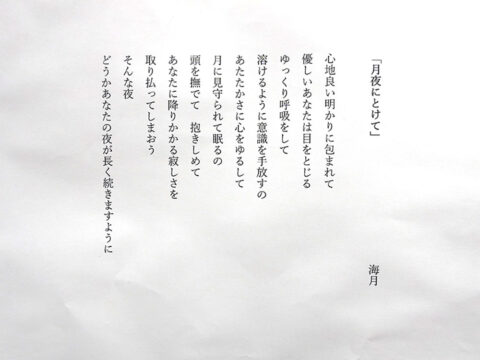 「月夜にとけて」
海月
心地良い明かりに包まれて
優しいあなたは目をとじる
ゆっくり呼吸をして
溶けるように意識を手放すの
あたたかさに心をゆるして
月に見守られて眠るの
頭を撫でて 抱きしめて
あなたに降りかかる寂しさを
取り払ってしまおう
そんな夜
どうかあなたの夜が長く続きますように